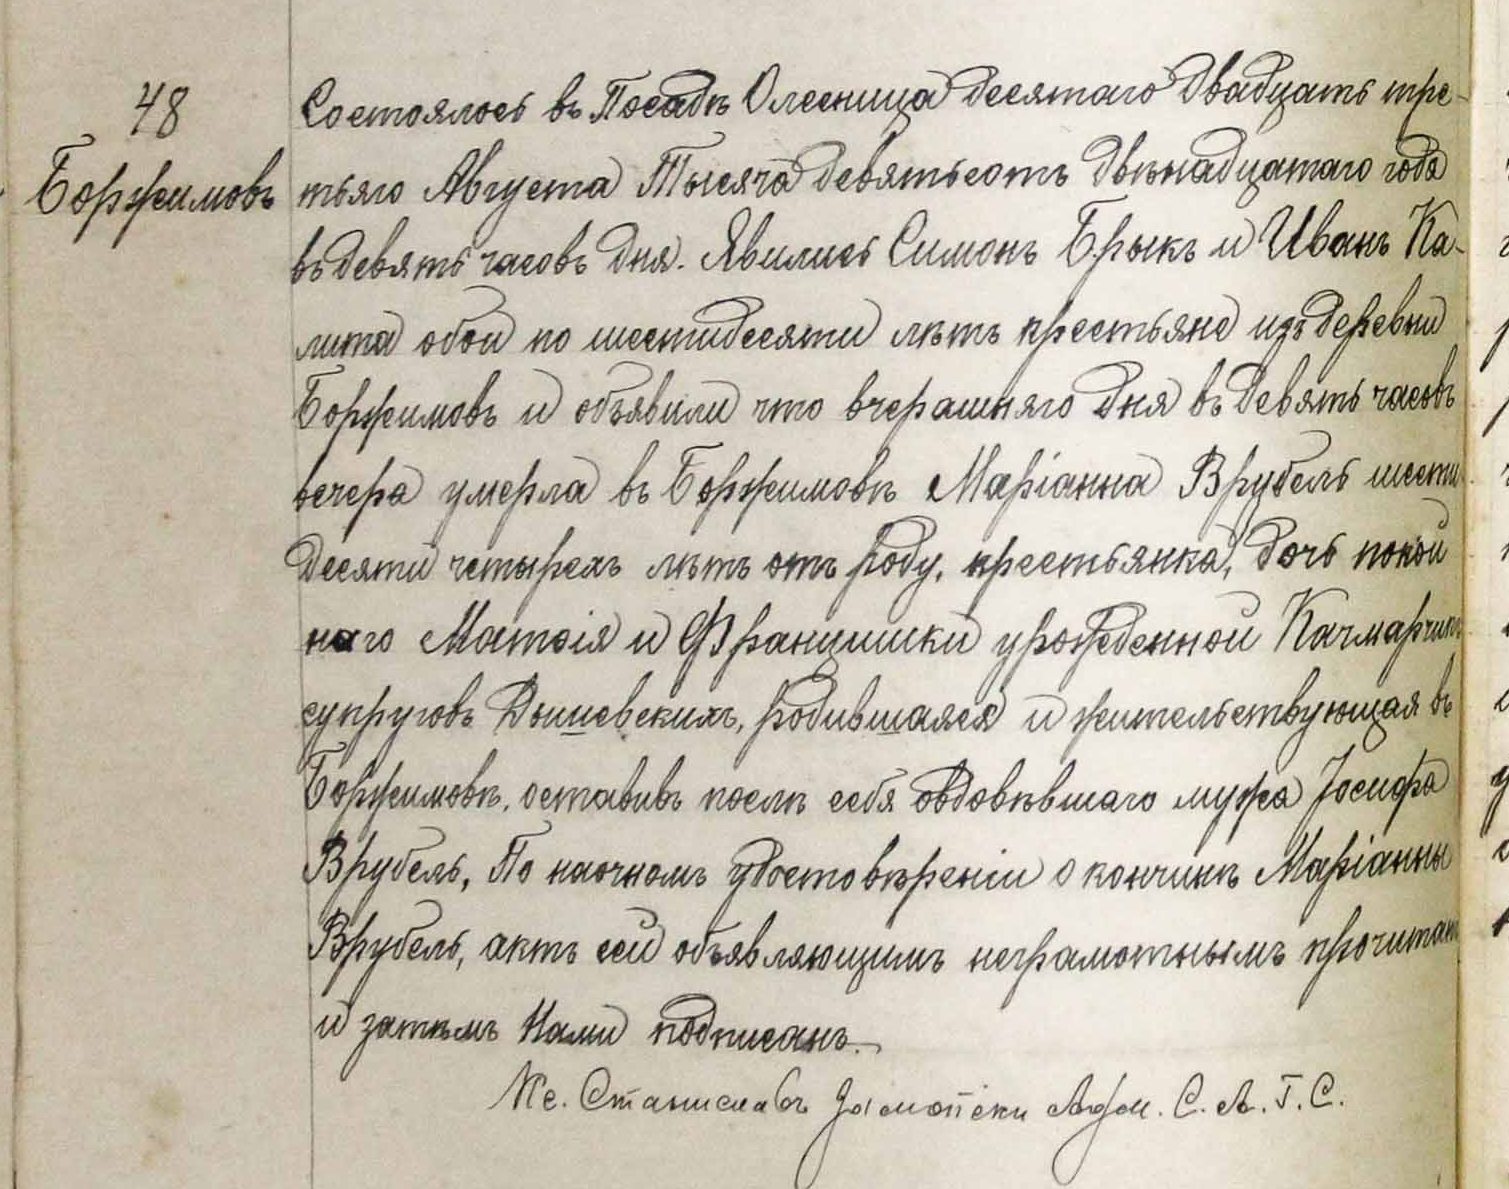 48
Боржимовъ
Состоялось въ Посадѣ Олесница десятаго двадцать тре-
тьяго Августа Тысяча девятьсотъ двѣнадцатаго года
въ девять часовъ дня. Явились Симонъ Брыкъ и Иванъ Ка-
лита обои по шестидесяти лѣтъ крестьяне изъ деревни
Боржимовъ и объявили что вчерашняго дня въ девять часовъ
вечера умерла въ Боржимовѣ Маріанна Врубель шести
десяти четырехъ лѣтъ отъ роду, крестьянка, дочь покой
наго Матѳія и Францишки урожденной Качмарчикъ
супруговъ Дышевскихъ, родившаяся и жительствующая въ
Боржимовѣ, оставивъ послѣ себя овдовѣвшаго мужа Іосифа
Врубель, По наочномъ удостовѣреніи о кончинѣ Маріанны
Врубель, актъ сей объявляющимъ неграмотнымъ прочитанъ
и затѣмъ Нами подписанъ.
Кс. Станиславъ Адм. С. А. Г. С.